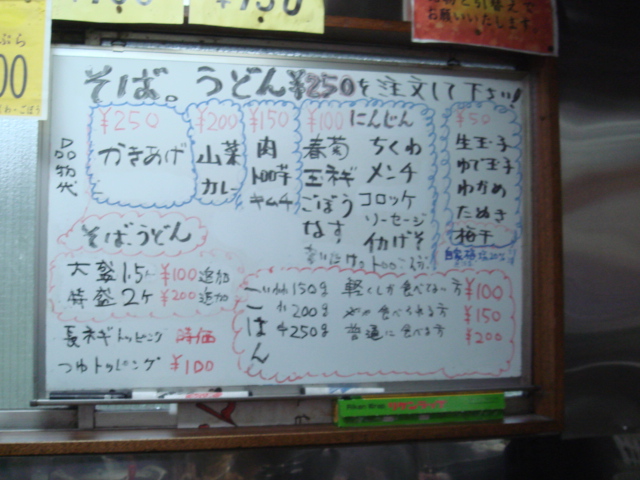 ぷら
00
¥150
お願いいたします。
そば。うどん¥250を注文して下さい!
品物代
¥250
かきあげ
¥200
山菜
カレー
¥150
肉
キムチ
¥100
にんじん
春菊
玉ネギ
ごぼう
なす
ちくわ
メンチ
コロッケ
ソーセージ
イカげそ
¥50
生玉子
ゆで玉子
わかめ
たぬき
梅干
そば、うどん
大盛 1.5ケ ¥100 追加
特盛 2ケ ¥200 追加
長ネギトッピング 時価
つゆトッピング ¥100
ごはん
150g 軽くしか食べない方 ¥100
200g 食べられる方 ¥150
250g 普通に食べる方 ¥200